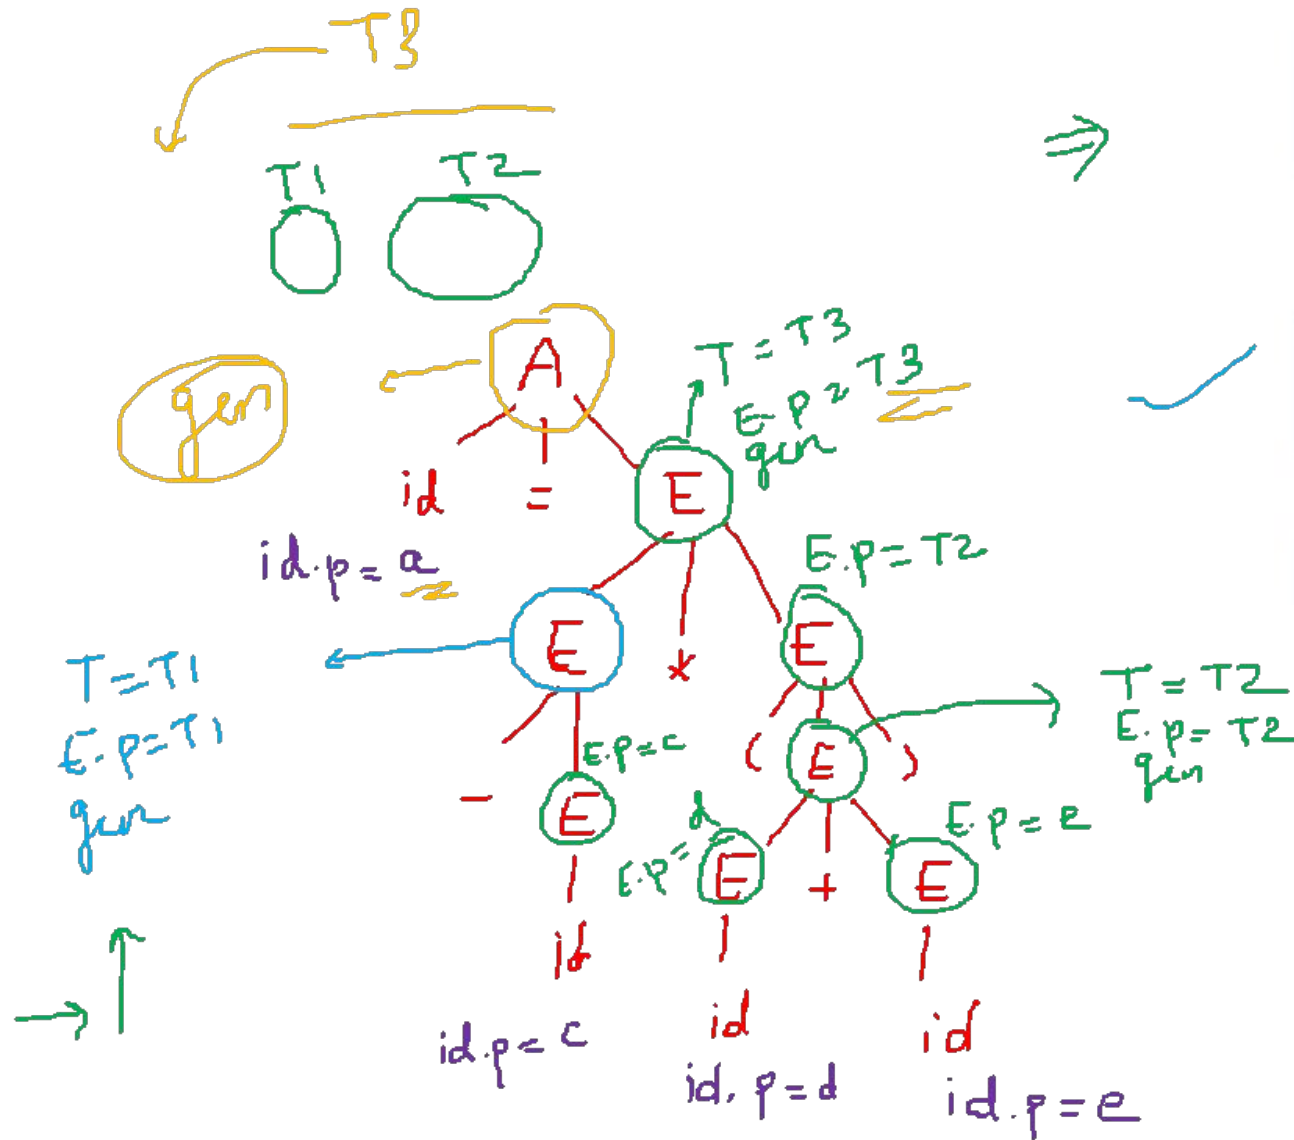 T3
T1 T2
A
T = T3
E.p = T3
gen
gen
id = E
id.p = a
E.p = T2
E * E
T = T1
E.p = T1
gen
T = T2
E.p = T2
gen
( E )
E.p = c
- E
E.p = d
E + E
E.p = e
id
id.p = c
id
id.p = d
id
id.p = e